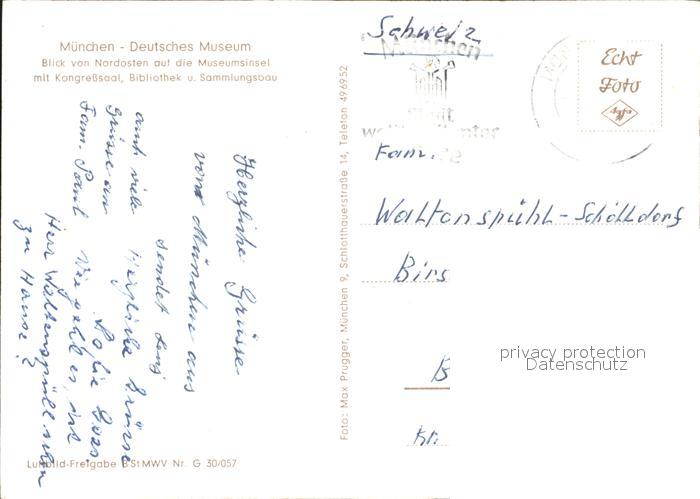 München - Deutsches Museum
Blick von Nordosten auf die Museumsinsel
mit Kongreßsaal, Bibliothek u. Sammlungsbau
Herzliche Grüsse
vom München aus
sendet
auch viele Herzliche Grüsse
Grüsse an
Fam. Paul Wie geht es, ist
Herr Waltenspühl schon
zu Hause?
Luftbild-Freigabe B St MWV Nr. G 30/057
Foto: Max Prugger, München 9, Schlotthauerstraße 14, Telefon 496952
Schweiz
München
Stadt
Echt
Foto
Agfa
Familie
Waltenspühl-Schölldorf
Birs
B
Kt.
privacy protection
Datenschutz